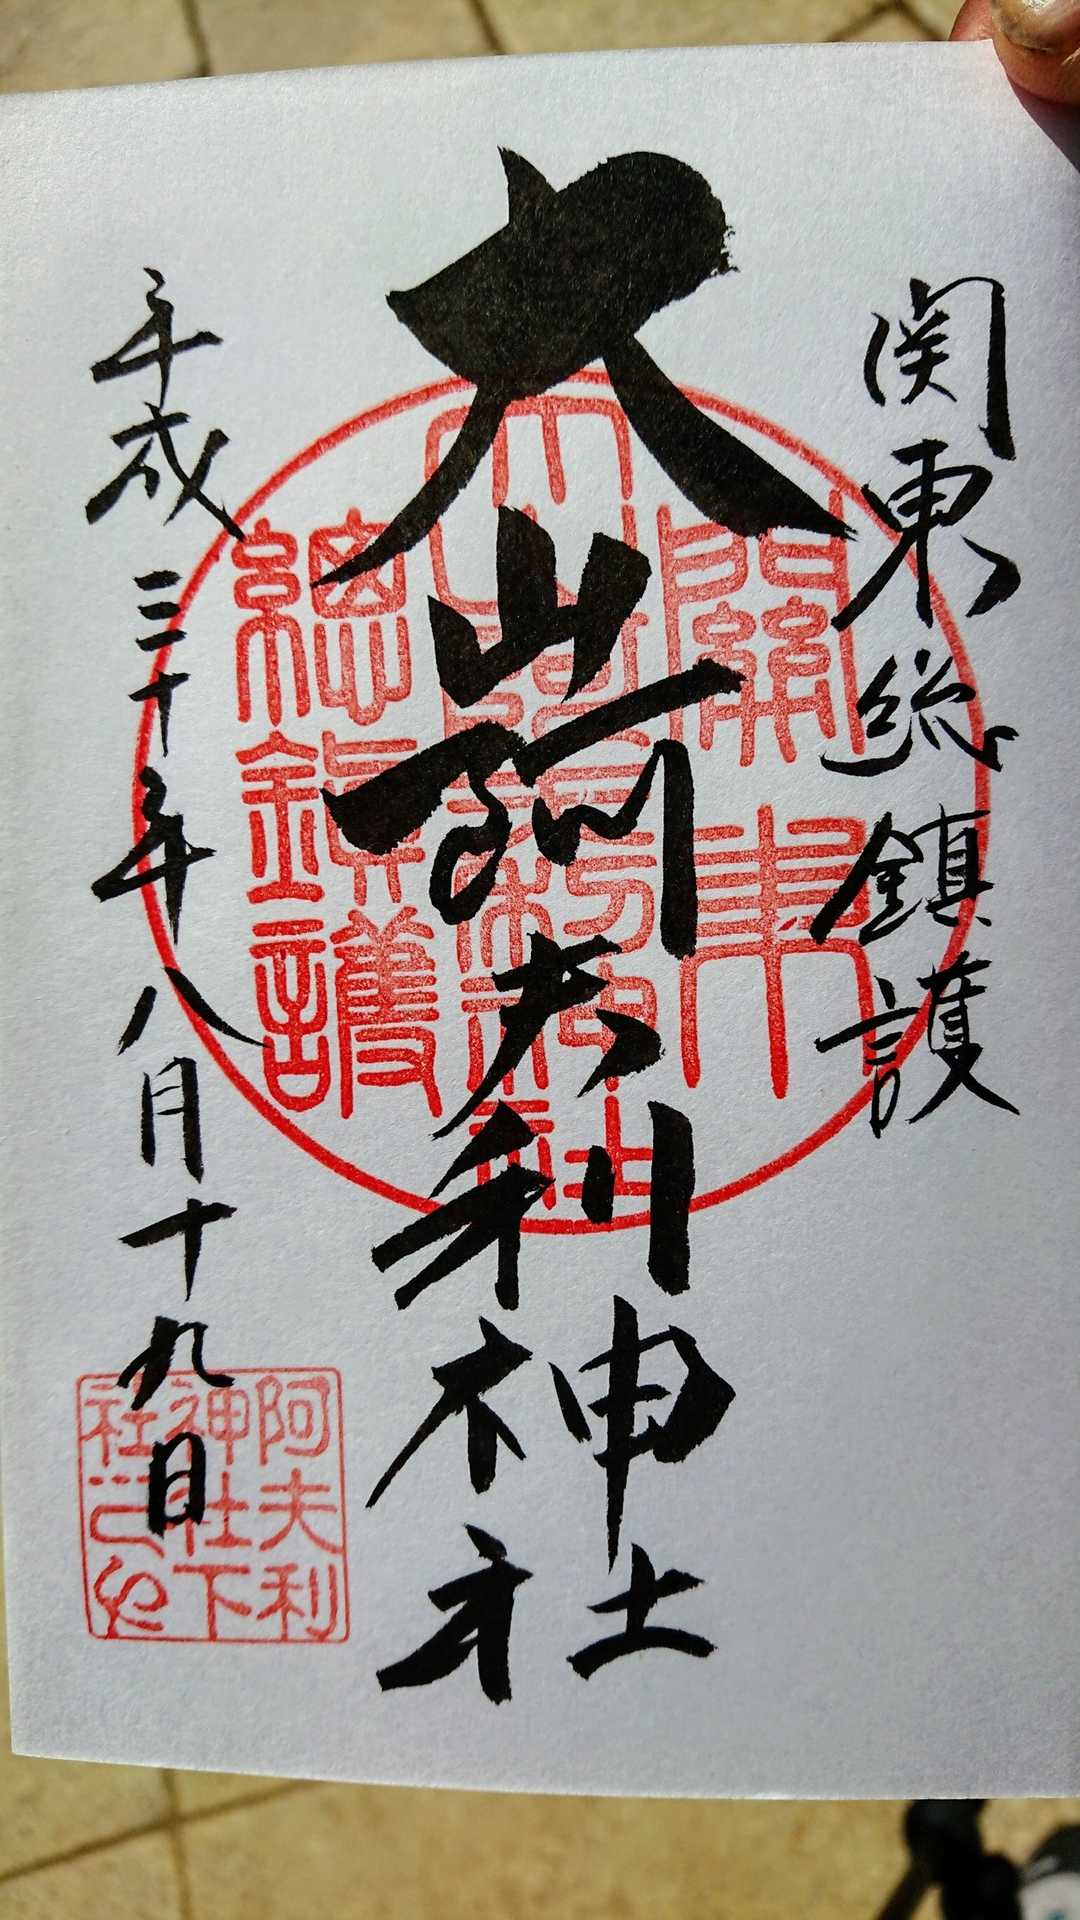 関東総鎮護
大山阿夫利神社
平成三十年八月十九日
關東
大山阿夫利神社
總鎮護
阿夫利
神社下
社之印